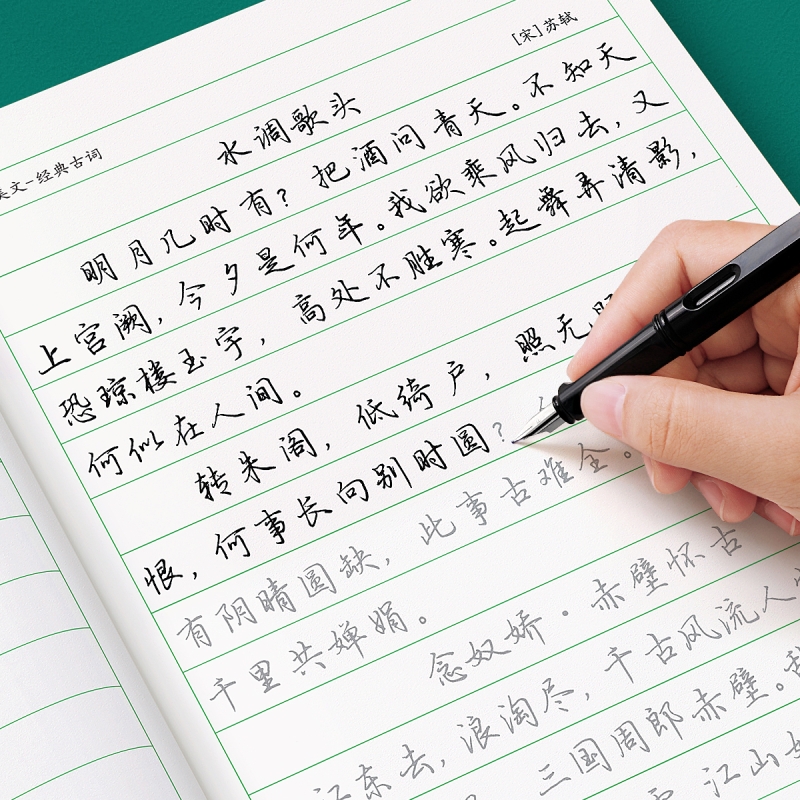 [宋]苏轼
美文-经典古词
水调歌头
明月几时有?把酒问青天。不知天
上宫阙,今夕是何年。我欲乘风归去,又
恐琼楼玉宇,高处不胜寒。起舞弄清影,
何似在人间。
转朱阁,低绮户,照无
恨,何事长向别时圆?
有阴晴圆缺,此事古难全。
千里共婵娟。
念奴娇·赤壁怀古
江东去,浪淘尽,千古风流人
三国周郎赤壁。乱
江山如